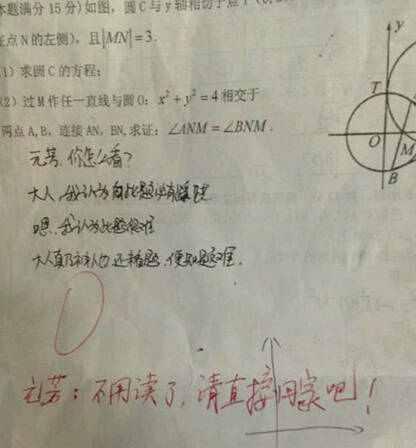 本题满分 15 分)如图,圆 C 与 y 轴相切于点 T(0,
在点 N 的左侧),且|MN|=3.
1)求圆 C 的方程;
2)过 M 作任一直线与圆 O: x²+y²=4 相交于
两点 A,B,连接 AN,BN,求证:∠ANM=∠BNM.
y
T
O
M
B
元芳,你怎么看?
大人,我认为此题必有蹊跷
嗯,我认为此题很难
大人真乃神人也,还没解题,便知是难题.
0
元芳:不用读了,请直接回家吧!